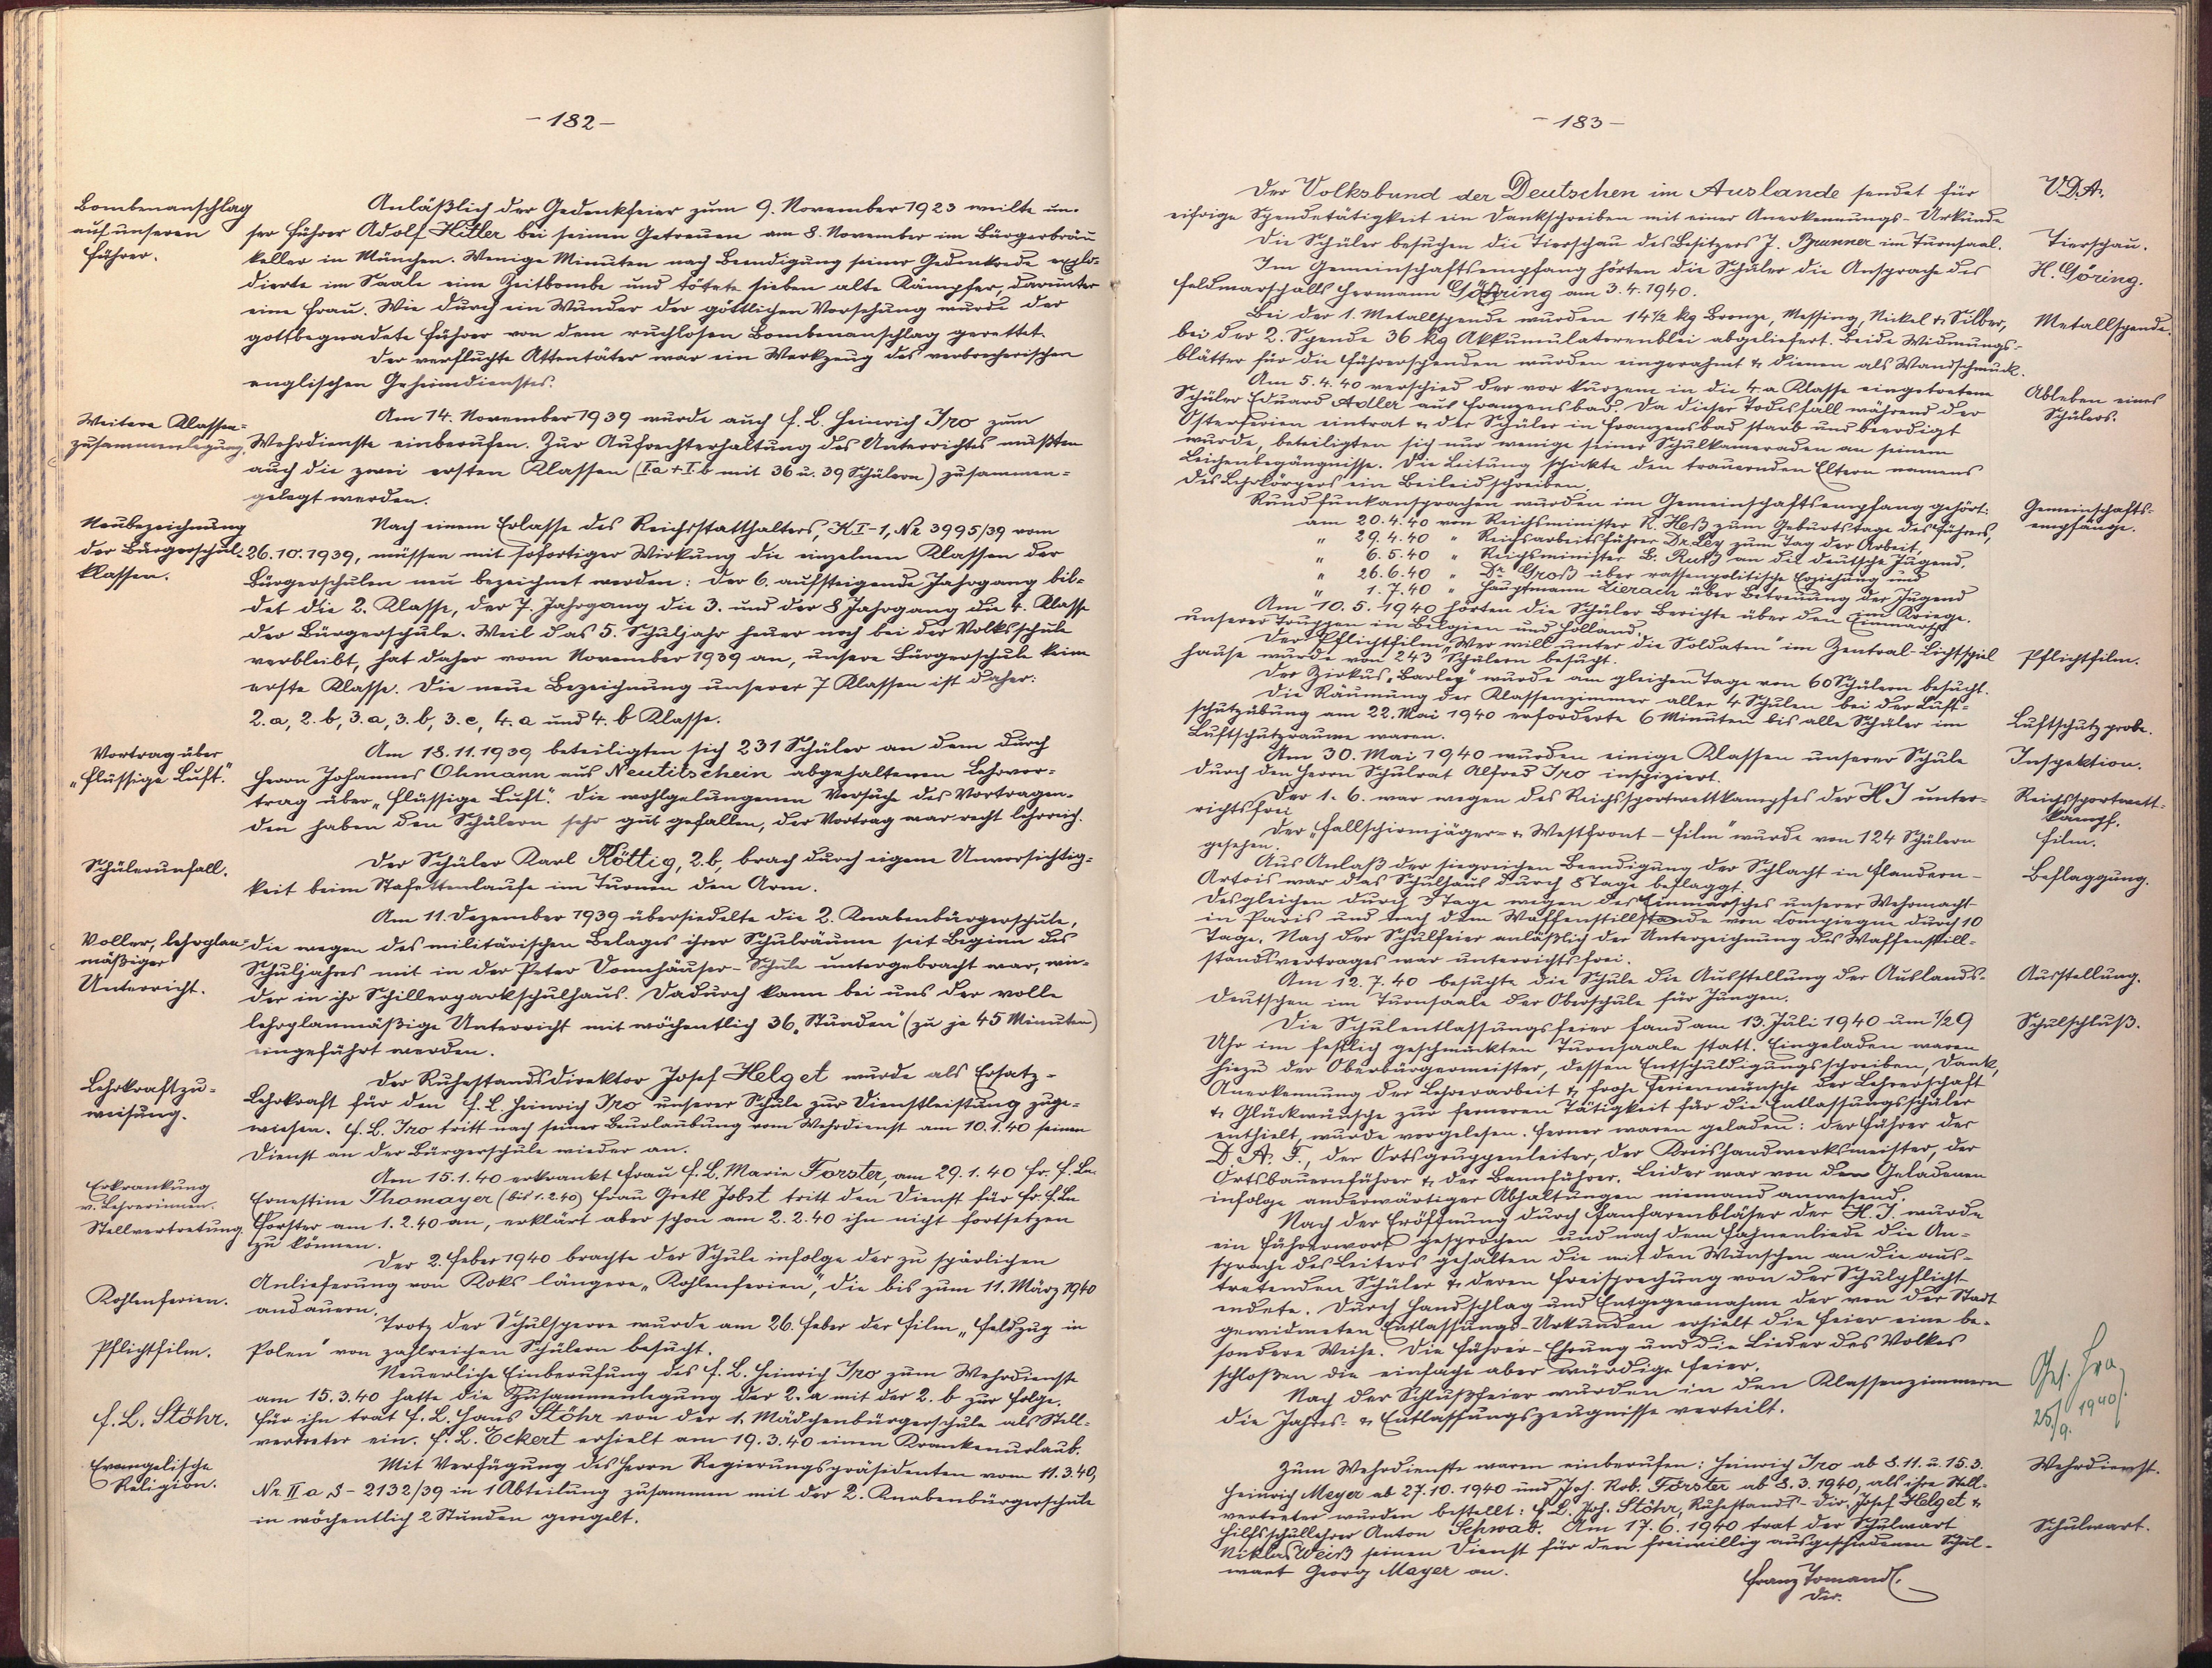 -182-
Bombenanschlag
auf unseren
Führer.
Anläßlich der Gedenkfeier zum 9. November 1923 weilte un-
ser Führer Adolf Hitler bei seinen Getreuen am 8. November im Bürgerbräu
keller in München. Wenige Minuten nach Beendigung seiner Gedenkrede explo-
dierte im Saale eine Zeitbombe und tötete sieben alte Kämpfer, darunter
eine Frau. Wie durch ein Wunder der göttlichen Vorsehung wurde der
gottbegnadete Führer von dem ruchlosen Bombenanschlag gerettet.
Der verfluchte Attentäter war ein Werkzeug des verbrecherischen
englischen Geheimdienstes.
Weitere Klassen-
zusammenlegung.
Am 14. November 1939 wurde auch F. L. Heinrich Iro zum
Wehrdienste einberufen. Zur Aufrechterhaltung des Unterrichtes mußten
auch die zwei ersten Klassen (I.a + I.b mit 36 u. 39 Schülern) zusammen-
gelegt werden.
Neubezeichnung
der Bürgerschul-
klassen.
Nach einem Erlasse des Reichsstatthalters, K I-1, Nr 3995/39 vom
26.10.1939, müssen mit sofortiger Wirkung die einzelnen Klassen der
Bürgerschulen neu bezeichnet werden: Der 6. aufsteigende Jahrgang bil-
det die 2. Klasse, der 7. Jahrgang die 3. und der 8 Jahrgang die 4. Klasse
der Bürgerschule. Weil das 5. Schuljahr heuer noch bei der Volksschule
verbleibt, hat daher vom November 1939 an, unsere Bürgerschule keine
erste Klasse. Die neue Bezeichnung unserer 7 Klassen ist daher:
2.a, 2.b, 3.a, 3.b, 3.c, 4.a und 4.b Klasse.
Vortrag über
„flüssige Luft".
Am 18.11.1939 beteiligten sich 231 Schüler an dem durch
Herrn Johannes Ohmann aus Neutitschein abgehaltenen Lehrvor-
trag über „flüssige Luft". Die wohlgelungenen Versuche des Vortragen-
den haben den Schülern sehr gut gefallen, der Vortrag war recht lehrreich.
Schülerunfall.
Der Schüler Karl Röttig, 2.b, brach durch eigene Unvorsichtig-
keit beim Stafettenlaufe im Turnen den Arm.
Voller, lehrplan-
mäßiger
Unterricht.
Am 11. Dezember 1939 übersiedelte die 2. Knabenbürgerschule,
die wegen des militärischen Belages ihrer Schulräume seit Beginn des
Schuljahres mit in der Peter Donnhäuser-Schule untergebracht war, wie-
der in ihr Schillerparkschulhaus. Dadurch kann bei uns der volle
lehrplanmäßige Unterricht mit wöchentlich 36 „Stunden" (zu je 45 Minuten)
eingeführt werden.
Lehrkraftzu-
weisung.
Der Ruhestandsdirektor Josef Helget wurde als Ersatz-
Lehrkraft für den F. L. Heinrich Iro unserer Schule zur Dienstleistung zuge-
wiesen. F. L. Iro tritt nach seiner Beurlaubung vom Wehrdienst am 10.1.40 seinen
Dienst an der Bürgerschule wieder an.
Erkrankung
v. Lehrerinnen.
Stellvertretung.
Am 15.1.40 erkrankt Frau F. L. Marie Forster, am 29.1.40 Fr. F. Ln.
Ernestine Thomayer (bis 1.2.40) Frau Gretl Jobst tritt den Dienst für Fr. F. Ln
Forster am 1.2.40 an, erklärt aber schon am 2.2.40 ihn nicht fortsetzen
zu können.
Kohlenferien.
Der 2. Feber 1940 brachte der Schule infolge der zu spärlichen
Anlieferung von Koks längere „Kohlenferien", die bis zum 11. März 1940
andauern.
Pflichtfilm.
Trotz der Schulsperre wurde am 26. Feber der Film „Feldzug in
Polen" von zahlreichen Schülern besucht.
F. L. Stöhr.
Neuerliche Einberufung des F. L. Heinrich Iro zum Wehrdienste
am 15.3.40 hatte die Zusammenlegung der 2.a mit der 2.b zur Folge.
Für ihn trat F. L. Hans Stöhr von der 1. Mädchenbürgerschule als Stell-
vertreter ein. F. L. Eckert erhielt am 19.3.40 einen Krankenurlaub.
Evangelische
Religion.
Mit Verfügung des Herrn Regierungspräsidenten vom 11.3.40,
Nr. II a S - 2132/39 in 1 Abteilung zusammen mit der 2. Knabenbürgerschule
in wöchentlich 2 Stunden geregelt.
-183-
Der Volksbund der Deutschen im Auslande sendet für
eifrige Spendetätigkeit ein Dankschreiben mit einer Anerkennungs-Urkunde
V.D.A.
Die Schüler besuchen die Tierschau des Besitzers J. Brunner im Turnsaal.
Tierschau.
Im Gemeinschaftsempfang hörten die Schüler die Ansprache des
Feldmarschalls Hermann Göring am 3.4.1940.
H. Göring.
Bei der 1. Metallspende wurden 14½ kg Bronze, Messing, Nickel & Silber,
bei der 2. Spende 36 kg Akkumulatorenblei abgeliefert. Beide Widmungs-
blätter für die Führerspenden wurden eingerahmt & dienen als Wandschmuck.
Metallspende.
Am 5.4.40 verschied der vor kurzem in die 4.a Klasse eingetretene
Schüler Eduard Adler aus Franzensbad. Da dieser Todesfall während der
Osterferien eintrat & der Schüler in Franzensbad starb und beerdigt
wurde, beteiligten sich nur wenige seiner Schulkameraden an seinem
Leichenbegängnisse. Die Leitung schickte den trauernden Eltern namens
des Lehrkörpers ein Beileidschreiben.
Ableben eines
Schülers.
Rundfunkansprachen wurden im Gemeinschaftsempfang gehört:
am 20.4.40 von Reichsminister R. Heß zum Geburtstage des Führers,
" 29.4.40 " Reichsarbeitsführer Dr. Ley zum Tag der Arbeit,
" 6.5.40 " Reichsminister B. Rust an die deutsche Jugend,
" 26.6.40 " Dr Groß über rassenpolitische Erziehung und
" 1.7.40 " Hauptmann Zierach über Betreuung der Jugend
im Kriege.
Gemeinschafts-
empfänge.
Am 10.5.1940 hörten die Schüler Berichte über den Einmarsch
unserer Truppen in Belgien und Holland.
Der Pflichtfilm „Wer will unter die Soldaten" im Zentral-Lichtspiel
hause wurde von 243 Schülern besucht.
Pflichtfilm.
Der Zirkus „Barley" wurde am gleichen Tage von 60 Schülern besucht.
Die Räumung der Klassenzimmer aller 4 Schulen bei der Luft-
schutzübung am 22. Mai 1940 erforderte 6 Minuten bis alle Schüler im
Luftschutzraume waren.
Luftschutzprobe.
Am 30. Mai 1940 wurden einige Klassen unserer Schule
durch den Herrn Schulrat Alfred Iro inspiziert.
Inspektion.
Der 1.6. war wegen des Reichssportwettkampfes der HJ unter-
richtsfrei
Reichssportwett-
kampf.
Der „Fallschirmjäger- & Westfront-Film" wurde von 124 Schülern
gesehen.
Film.
Aus Anlaß der siegreichen Beendigung der Schlacht in Flandern-
Artois war das Schulhaus durch 8 Tage beflaggt.
Desgleichen durch 3 Tage wegen des Einmarsches unserer Wehrmacht
in Paris und nach dem Waffenstillstande von Compiegne durch 10
Tage. Nach der Schulfeier anläßlich der Unterzeichnung des Waffenstill-
standsvertrages war unterrichtsfrei.
Beflaggung.
Am 12.7.40 besuchte die Schule die Ausstellung der Auslands-
deutschen im Turnsaale der Oberschule für Jungen.
Ausstellung.
Die Schulentlassungsfeier fand am 13. Juli 1940 um ½9
Uhr im festlich geschmückten Turnsaale statt. Eingeladen waren
hiezu der Oberbürgermeister, dessen Entschuldigungsschreiben, Dank,
Anerkennung der Lehrerarbeit & frohe Ferienwünsche der Lehrerschaft
& Glückwünsche zur ferneren Tätigkeit für die Entlassungsschüler
enthielt, wurde vorgelesen. Ferner waren geladen: der Führer der
D. A. F., der Ortsgruppenleiter, der Kreishandwerksmeister, der
Ortsbauernführer & der Bannführer. Leider war von den Geladenen
infolge anderwärtiger Abhaltungen niemand anwesend.
Schulschluß.
Nach der Eröffnung durch Fanfarenbläser der H. J. wurde
ein Führerwort gesprochen und nach dem Fahnenliede die An-
sprache des Leiters gehalten die mit den Wünschen an die aus-
tretenden Schüler & deren Freisprechung von der Schulpflicht
endete. Durch Handschlag und Entgegennahme der von der Stadt
gewidmeten Entlassungs-Urkunden erhielt die Feier eine be-
sondere Weihe. Die Führer-Ehrung und die Lieder des Volkes
schloßen die einfache aber würdige Feier.
Nach der Schlußfeier wurden in den Klassenzimmern
die Jahres- & Entlassungszeugnisse verteilt.
Ges. Iro
25/9. 1940.
Zum Wehrdienste waren einberufen: Heinrich Iro ab 8.11. u. 15.3.
Heinrich Meyer ab 27.10.1940 und Joh. Rob. Förster ab 8.3.1940, als ihre Stell-
vertreter wurden bestellt: F. L. Joh. Stöhr, Ruhestands-Dir. Josef Helget &
Hilfsschullehrer Anton Schwab. Am 17.6.1940 trat der Schulwart
Niklas Weiß seinen Dienst für den freiwillig ausgeschiedenen Schul-
wart Georg Mayer an.
Wehrdienst.
Schulwart.
Franz Tomandl.
Dir.